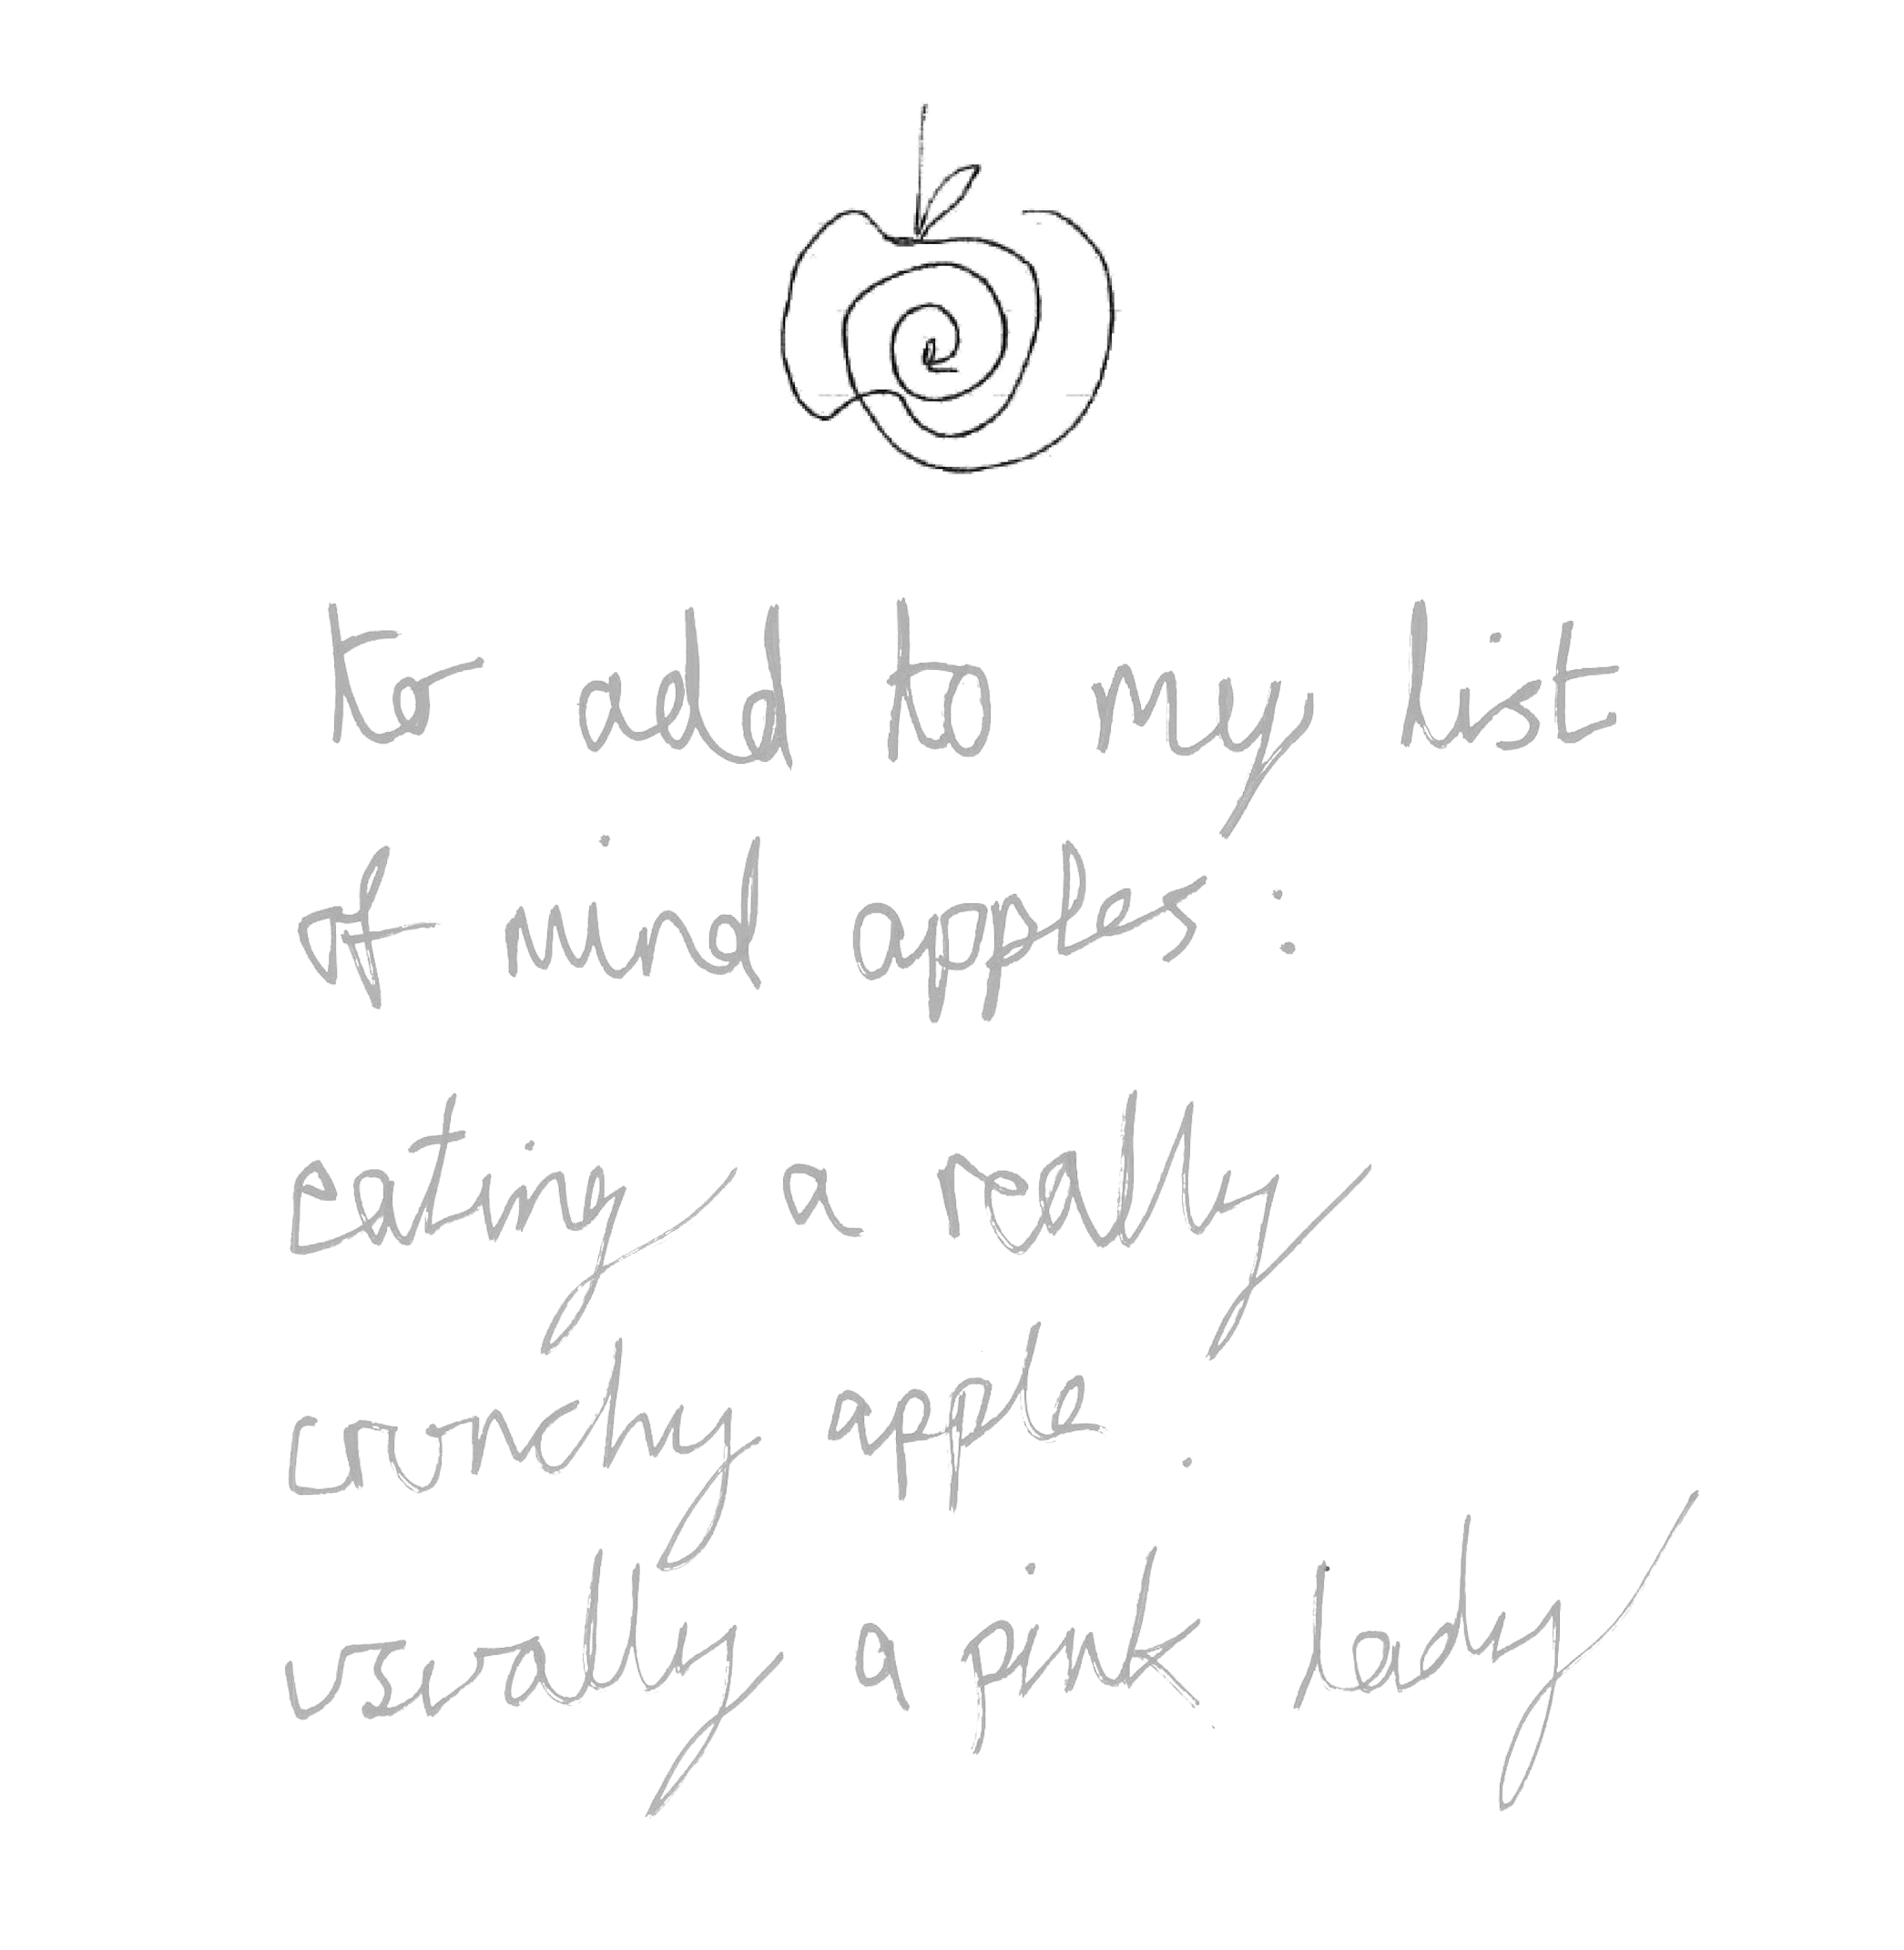 to add to my list
of mind apples:
eating a really
crunchy apple.
usually a pink lady